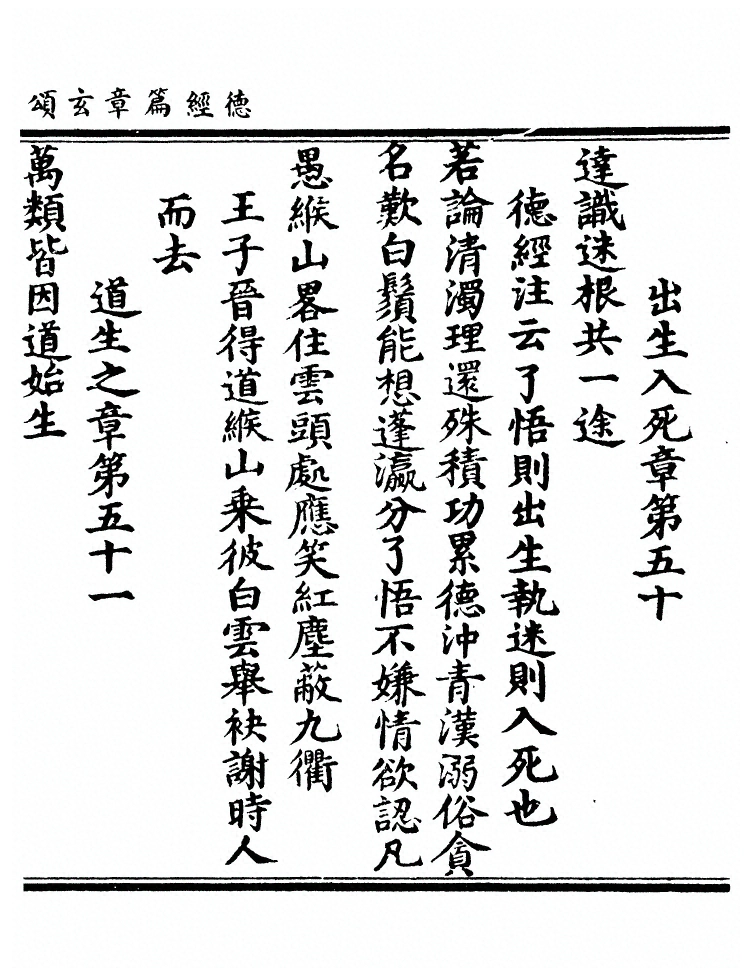 德經篇章玄頌
出生入死章第五十
達識迷根共一途
德經注云了悟則出生執迷則入死也
若論清濁理還殊積功累德沖青漢溺俗貪
名歎白鬚能想蓬瀛分了悟不嫌情欲認凡
愚緱山畧住雲頭處應笑紅塵蔽九衢
王子晉得道緱山乗彼白雲舉袂謝時人
而去
道生之章第五十一
萬類皆因道始生